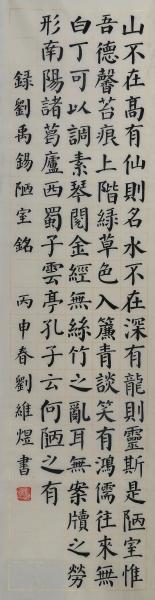 山不在高有仙則名水不在深有龍則靈斯是陋室惟
吾德馨苔痕上階綠草色入簾青談笑有鴻儒往來無
白丁可以調素琴閱金經無絲竹之亂耳無案牘之勞
形南陽諸葛廬西蜀子雲亭孔子云何陋之有
錄劉禹錫陋室銘 丙申春劉維煜書